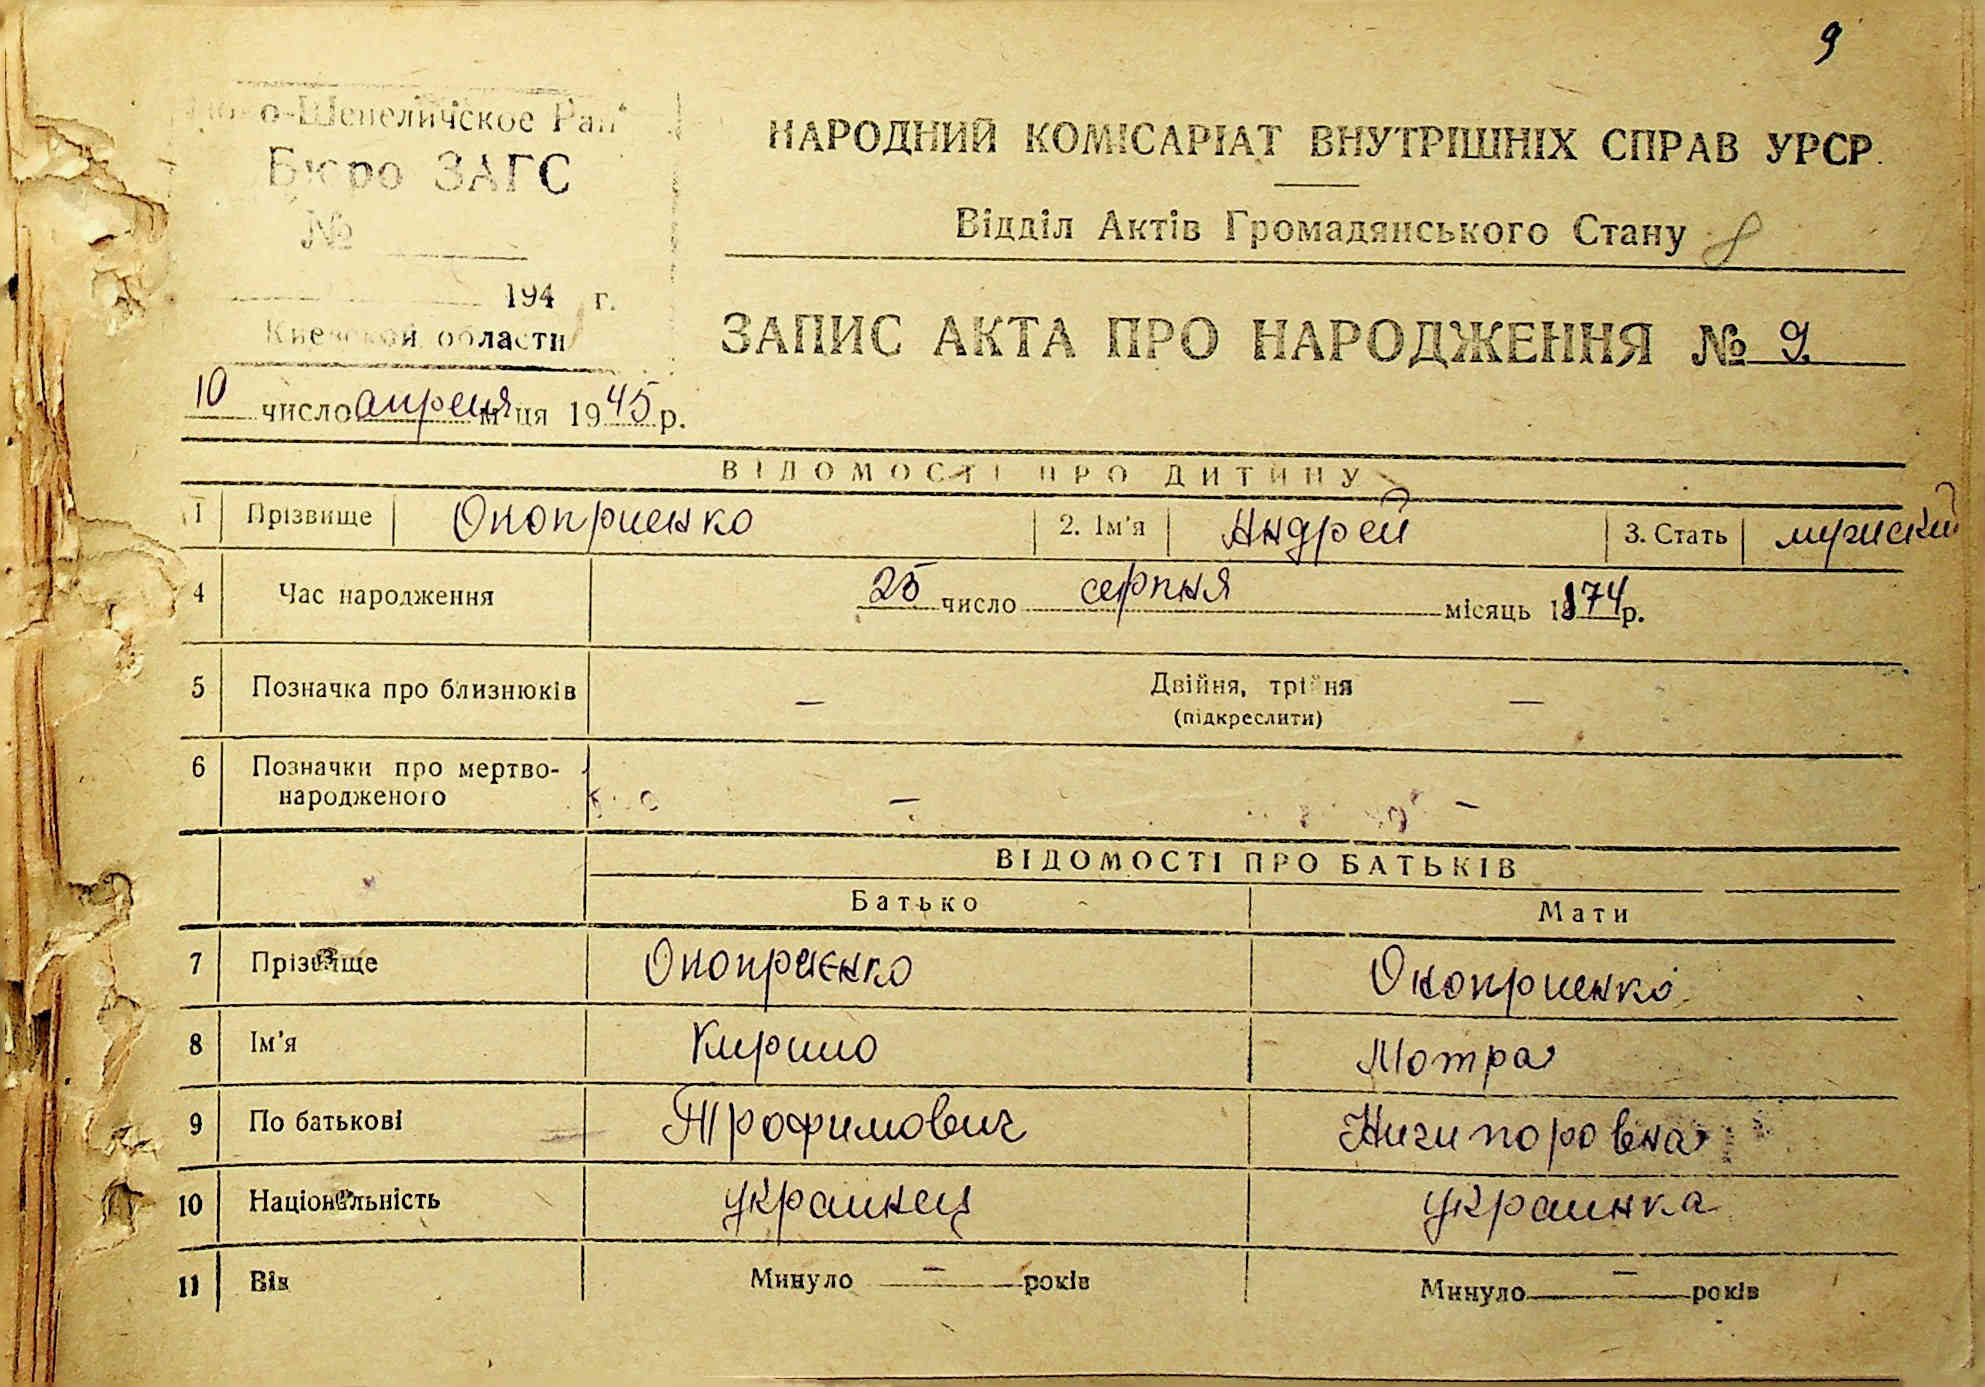 9
о-Шепеличское Рай
Бюро ЗАГС
№
194 г.
Киевской области
НАРОДНИЙ КОМІСАРІАТ ВНУТРІШНІХ СПРАВ УРСР
Відділ Актів Громадянського Стану 8
ЗАПИС АКТА ПРО НАРОДЖЕННЯ № 9.
10 число апреля м-ця 1945 р.
ВІДОМОСТІ ПРО ДИТИНУ
1 Прізвище Оноприенко 2. Ім'я Андрей 3. Стать мужский
4 Час народження 25 число серпня місяць 1874 р.
5 Позначка про близнюків — Двійня, трійня —
(підкреслити)
6 Позначки про мертво-
народженого — —
ВІДОМОСТІ ПРО БАТЬКІВ
Батько Мати
7 Прізвище Оноприєнко Оноприенко
8 Ім'я Кирило Мотра
9 По батькові Трофимович Ничипоровна
10 Національність украинец украинка
11 Вік Минуло — років Минуло — років